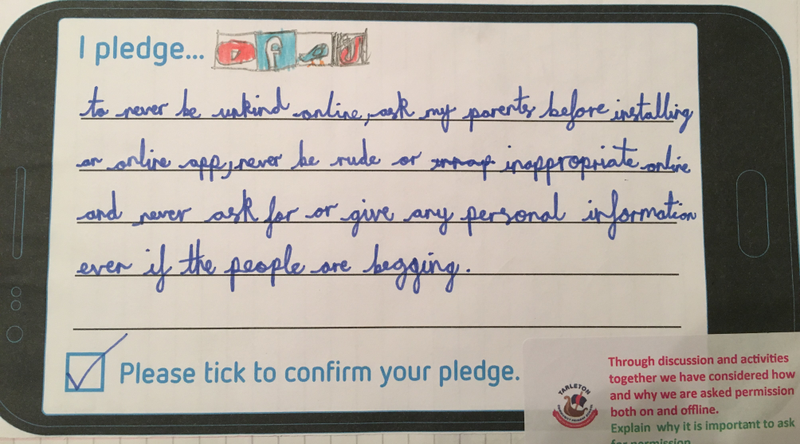 I pledge...
to never be unkind online, ask my parents before installing
an online app, never be rude or inappropriate online
and never ask for or give any personal information
even if the people are begging.
Please tick to confirm your pledge.
TARLETON
Through discussion and activities
together we have considered how
and why we are asked permission
both on and offline.
Explain why it is important to ask
for permission